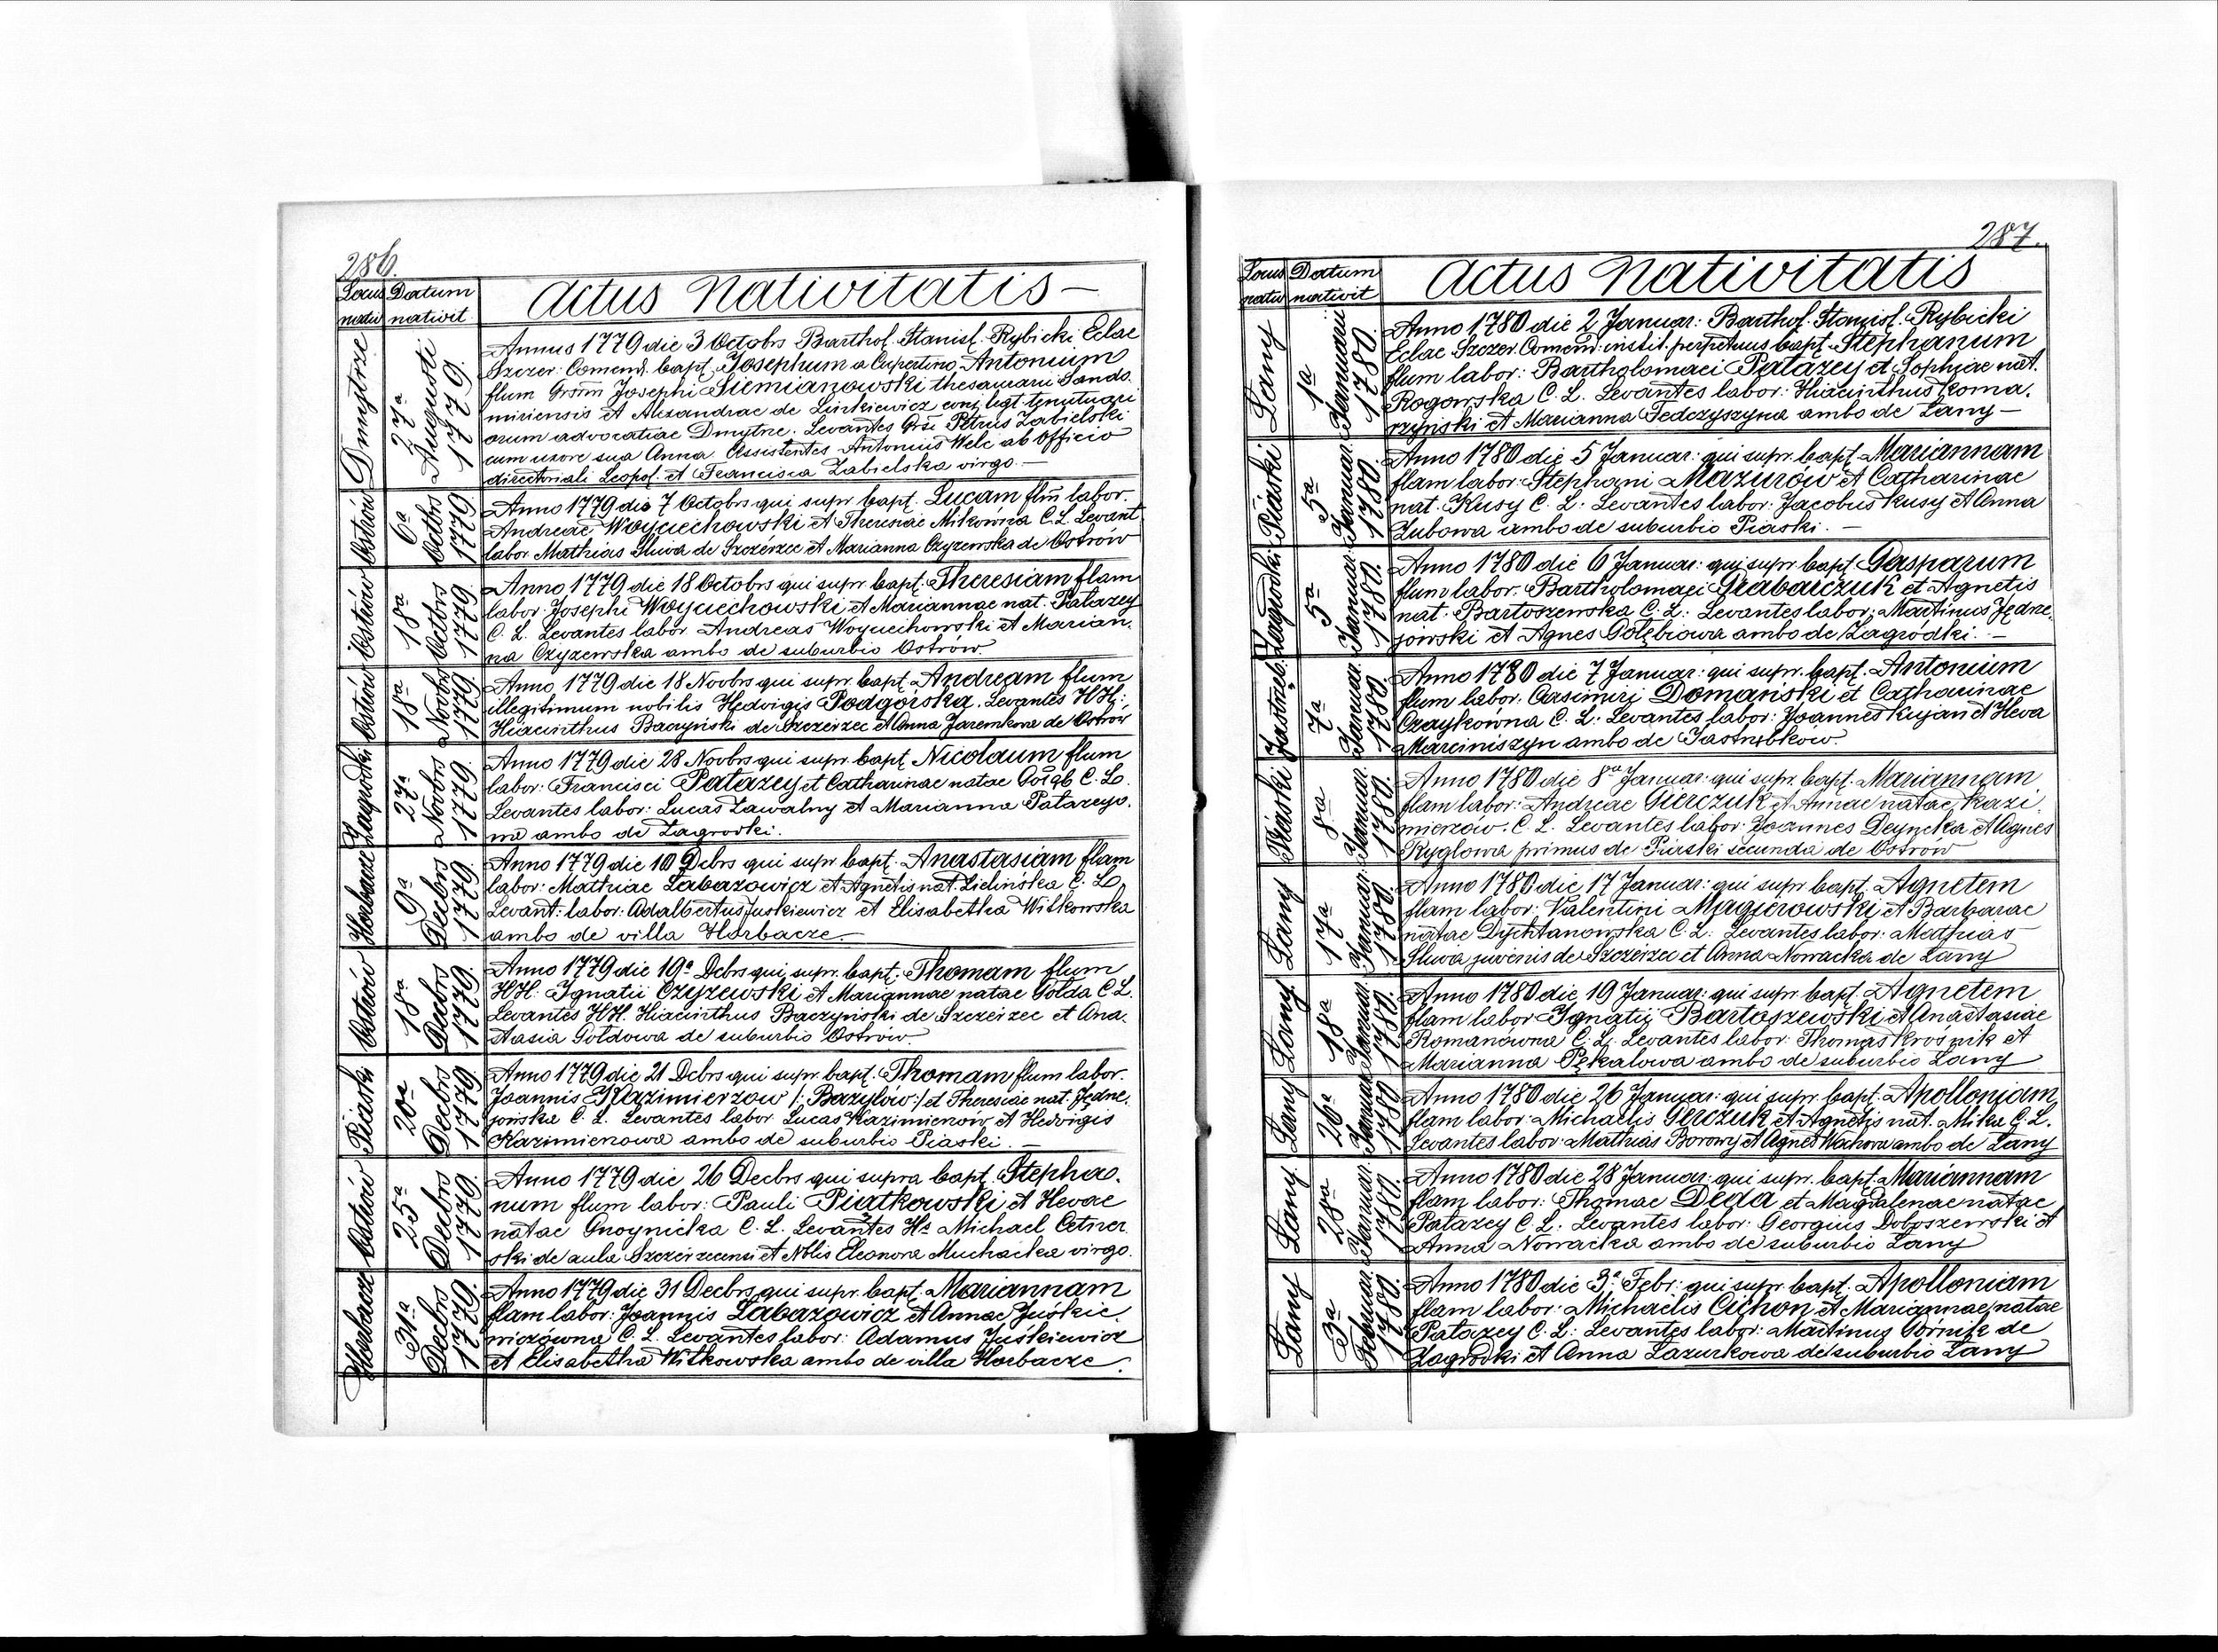 286.
Locus nativ
Datum nativit
Actus Nativitatis —
Dmytrze
27a Augusti 1779.
Annus 1779 die 3 Octobrs Barthol. Stanisl. Rybicki Eclae
Szczer: Comend. bapt. Josephum a Cupertino Antonium
flum Grosm Josephi Siemianowski thesaurarii Sando.
miriensis et Alexandrae de Linkiewicz conj. legt. tenutuari
orum advocatiae Dmytrze. Levantes Grsi Petrus Zabielski
cum uxore sua Anna Assistentes Antonius Welc ab Officio
directoriali Leopol. et Francisca Zabielska virgo. —
Ostrów
6a Octbrs 1779.
Anno 1779 die 7 Octobrs qui supr bapt. Lucam flm labor.
Andreae Woyciechowski et Theresiae Mikowna C. L. Levant
labor Mathias Sliwa de Szczérzec et Marianna Czyzewska de Ostrow
Ostrów
18a Octbrs 1779.
Anno 1779 die 18 Octobrs qui supr. bapt. Theresiam flam
labor. Josephi Woyciechowski et Mariannae nat. Patazey
C. L. Levantes labor. Andreas Woyciechowski et Marian.
na Czyzewska ambo de suburbio Ostrów.
Ostrów
18a Novbrs 1779.
Anno 1779 die 18 Novbrs qui supr. bapt. Andream flum
illegitimum nobilis Hedvigis Podgórska. Levantes HH:
Hiacinthus Baczyński de Szczérzec et Anna Jaremkowa de Ostrow
Zagrodki
27a Novbrs 1779.
Anno 1779 die 28 Novbrs qui supr. bapt. Nicolaum flum
labor: Francisci Patazey et Catharinae natae Gołąb C. L.
Levantes labor: Lucas Zawalny et Marianna Patazeyo.
wa ambo de Zagrodki.
Horbacze
9a Decbrs 1779.
Anno 1779 die 10 Dcbrs qui supr bapt. Anastasiam flam
labor: Mathiae Labazowicz et Agnetis nat. Zielińska C. L.
Levant: labor: Adalbertus Juskiewicz et Elisabetha Witkowska
ambo de villa Horbacze. —
Ostrów
18a Decbrs 1779.
Anno 1779 die 19a Dcbrs qui supr. bapt. Thomam flum
HH: Ignatii Czyzewski et Mariannae natae Gołda C L.
Levantes HH. Hiacinthus Baczyński de Szczérzec et Ana.
stasia Gołdowa de suburbio Ostrów.
Piaski
20a Decbrs 1779.
Anno 1779 die 21 Dcbrs qui supr. bapt. Thomam flum labor.
Joannis Kazimierzow /: Bazylow :/ et Theresiae nat. Jędrze.
jowska C. L. Levantes labor Lucas Kazimierzów et Hedvigis
Kazimierzowa ambo de suburbio Piaski. —
Ostrów
25a Decbrs 1779.
Anno 1779 die 26 Decbrs qui supra bapt. Stepha.
num flum labor: Pauli Piatkowski et Hevae
natae Gnoynicka C. L. Levantes Hs Michael Cetner.
ski de aula Szczérzecensi et Nblis Eleonora Muchacka virgo.
Horbacze
31a Decbrs 1779.
Anno 1779 die 31 Decbrs qui supr. bapt. Mariannam
flam labor: Joannis Labazowicz et Annae Juśkie.
wiczówna C. L. Levantes labor: Adamus Juśkiewicz
et Elisabetha Witkowska ambo de villa Horbacze.
287.
Locus nativ
Datum nativit
Actus Nativitatis
Łany
1a Januarii 1780.
Anno 1780 die 2 Januar: Barthol. Stanisl. Rybicki
Eclae Szczer. Comend. instit. perpetuus bapt. Stephanum
flum labor: Bartholomaei Patazey et Sophiae nat.
Rogowska C. L. Levantes labor: Hiacinthus Koma.
rzyński et Marianna Fedczyszyna ambo de Łany —
Piaski
5a Januar. 1780.
Anno 1780 die 5 Januar: qui supr. bapt. Mariannam
flam labor: Stephani Mazurów et Catharinae
nat. Kusy C. L. Levantes labor: Jacobus Kusy et Anna
Zubowa ambo de suburbio Piaski. —
Zagrodki
5a Januar. 1780.
Anno 1780 die 6 Januar: qui supr. bapt. Gasparum
flum labor. Bartholomaei Grabarczuk et Agnetis
nat. Bartoszewska C. L: Levantes labor: Martinus Jędrze.
jowski et Agnes Gołębiowa ambo de Zagródki. —
Jastrzęb.
7a Januar. 1780.
Anno 1780 die 7 Januar: qui supr. bapt. Antonium
flum labor: Casimiri Domański et Catharinae
Czaykówna C. L: Levantes labor: Joannes Kujan et Heva
Marciniszyn ambo de Jastrzębkow.
Piaski
8a Januar. 1780.
Anno 1780 die 8va Januar: qui supr bapt. Mariannam
flam labor: Andreae Gierczuk et Annae natae Kazi.
mierzów. C. L. Levantes labor: Joannes Deyneka et Agnes
Ryglowa primus de Piaski secunda de Ostrow
Łany
17a Januar. 1780.
Anno 1780 die 17 Januar: qui supr bapt. Agnetem
flam labor: Valentini Magierowski et Barbarae
natae Dychtanowska C. L: Levantes labor: Mathias
Sliwa juvenis de Szczérzec et Anna Nowacka de Łany
Łany
18a Januar. 1780.
Anno 1780 die 19 Januar: qui supr bapt. Agnetem
flam labor Ignatij Bartoszewski et Anastasiae
Romanówna C. L: Levantes labor: Thomas Krośnik et
Marianna Pękalowa ambo de suburbio Łany
Łany
26a Januar. 1780.
Anno 1780 die 26 Januar: qui supr. bapt. Apolloniam
flam labor: Michaelis Gerczuk et Agnetis nat. Mika C. L.
Levantes labor: Mathias Borowy et Agnes Wachowa ambo de Łany
Łany
28a Januar. 1780.
Anno 1780 die 28 Januar: qui supr. bapt. Mariannam
flam labor: Thomae Dega et Magdalenae natae
Patazey C. L. Levantes labor: Georgius Doboszewski et
Anna Nowacka ambo de suburbio Łany
Łany
3a Februar. 1780.
Anno 1780 die 3a Febr: qui supr. bapt. Apolloniam
flam labor: Michaelis Cichon et Mariannae natae
Patazey C. L: Levantes labor: Martinus Górnik de
Zagrodki et Anna Lazurkowa de suburbio Łany